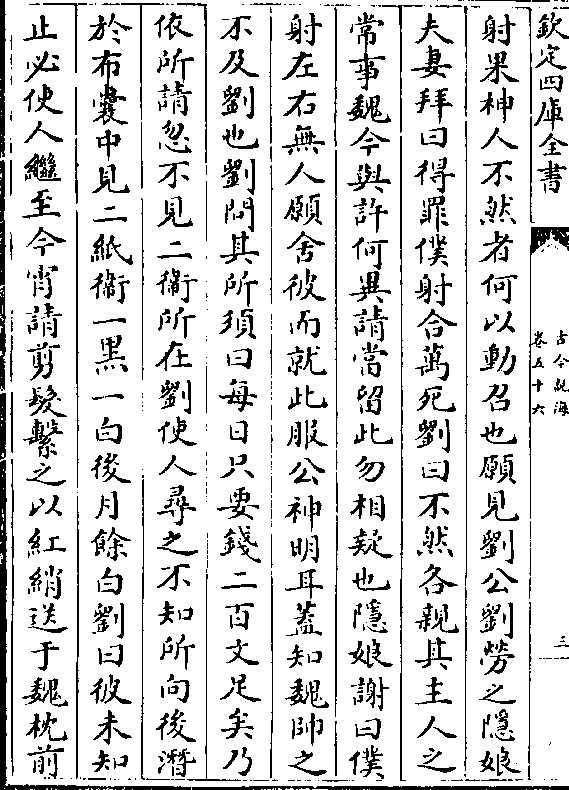 欽定四庫全書
古今說海
卷五十六
三
射果神人不然者何以動召也願見劉公劉勞之隱娘
夫妻拜曰得罪僕射合萬死劉曰不然各親其主人之
常事魏今與許何異請當留此勿相疑也隱娘謝曰僕
射左右無人願舍彼而就此服公神明耳蓋知魏帥之
不及劉也劉問其所須曰每日只要錢二百文足矣乃
依所請忽不見二衛所在劉使人尋之不知所向後潛
於布囊中見二紙衛一黑一白後月餘白劉曰彼未知
止必使人繼至今宵請剪髮繫之以紅綃送于魏枕前